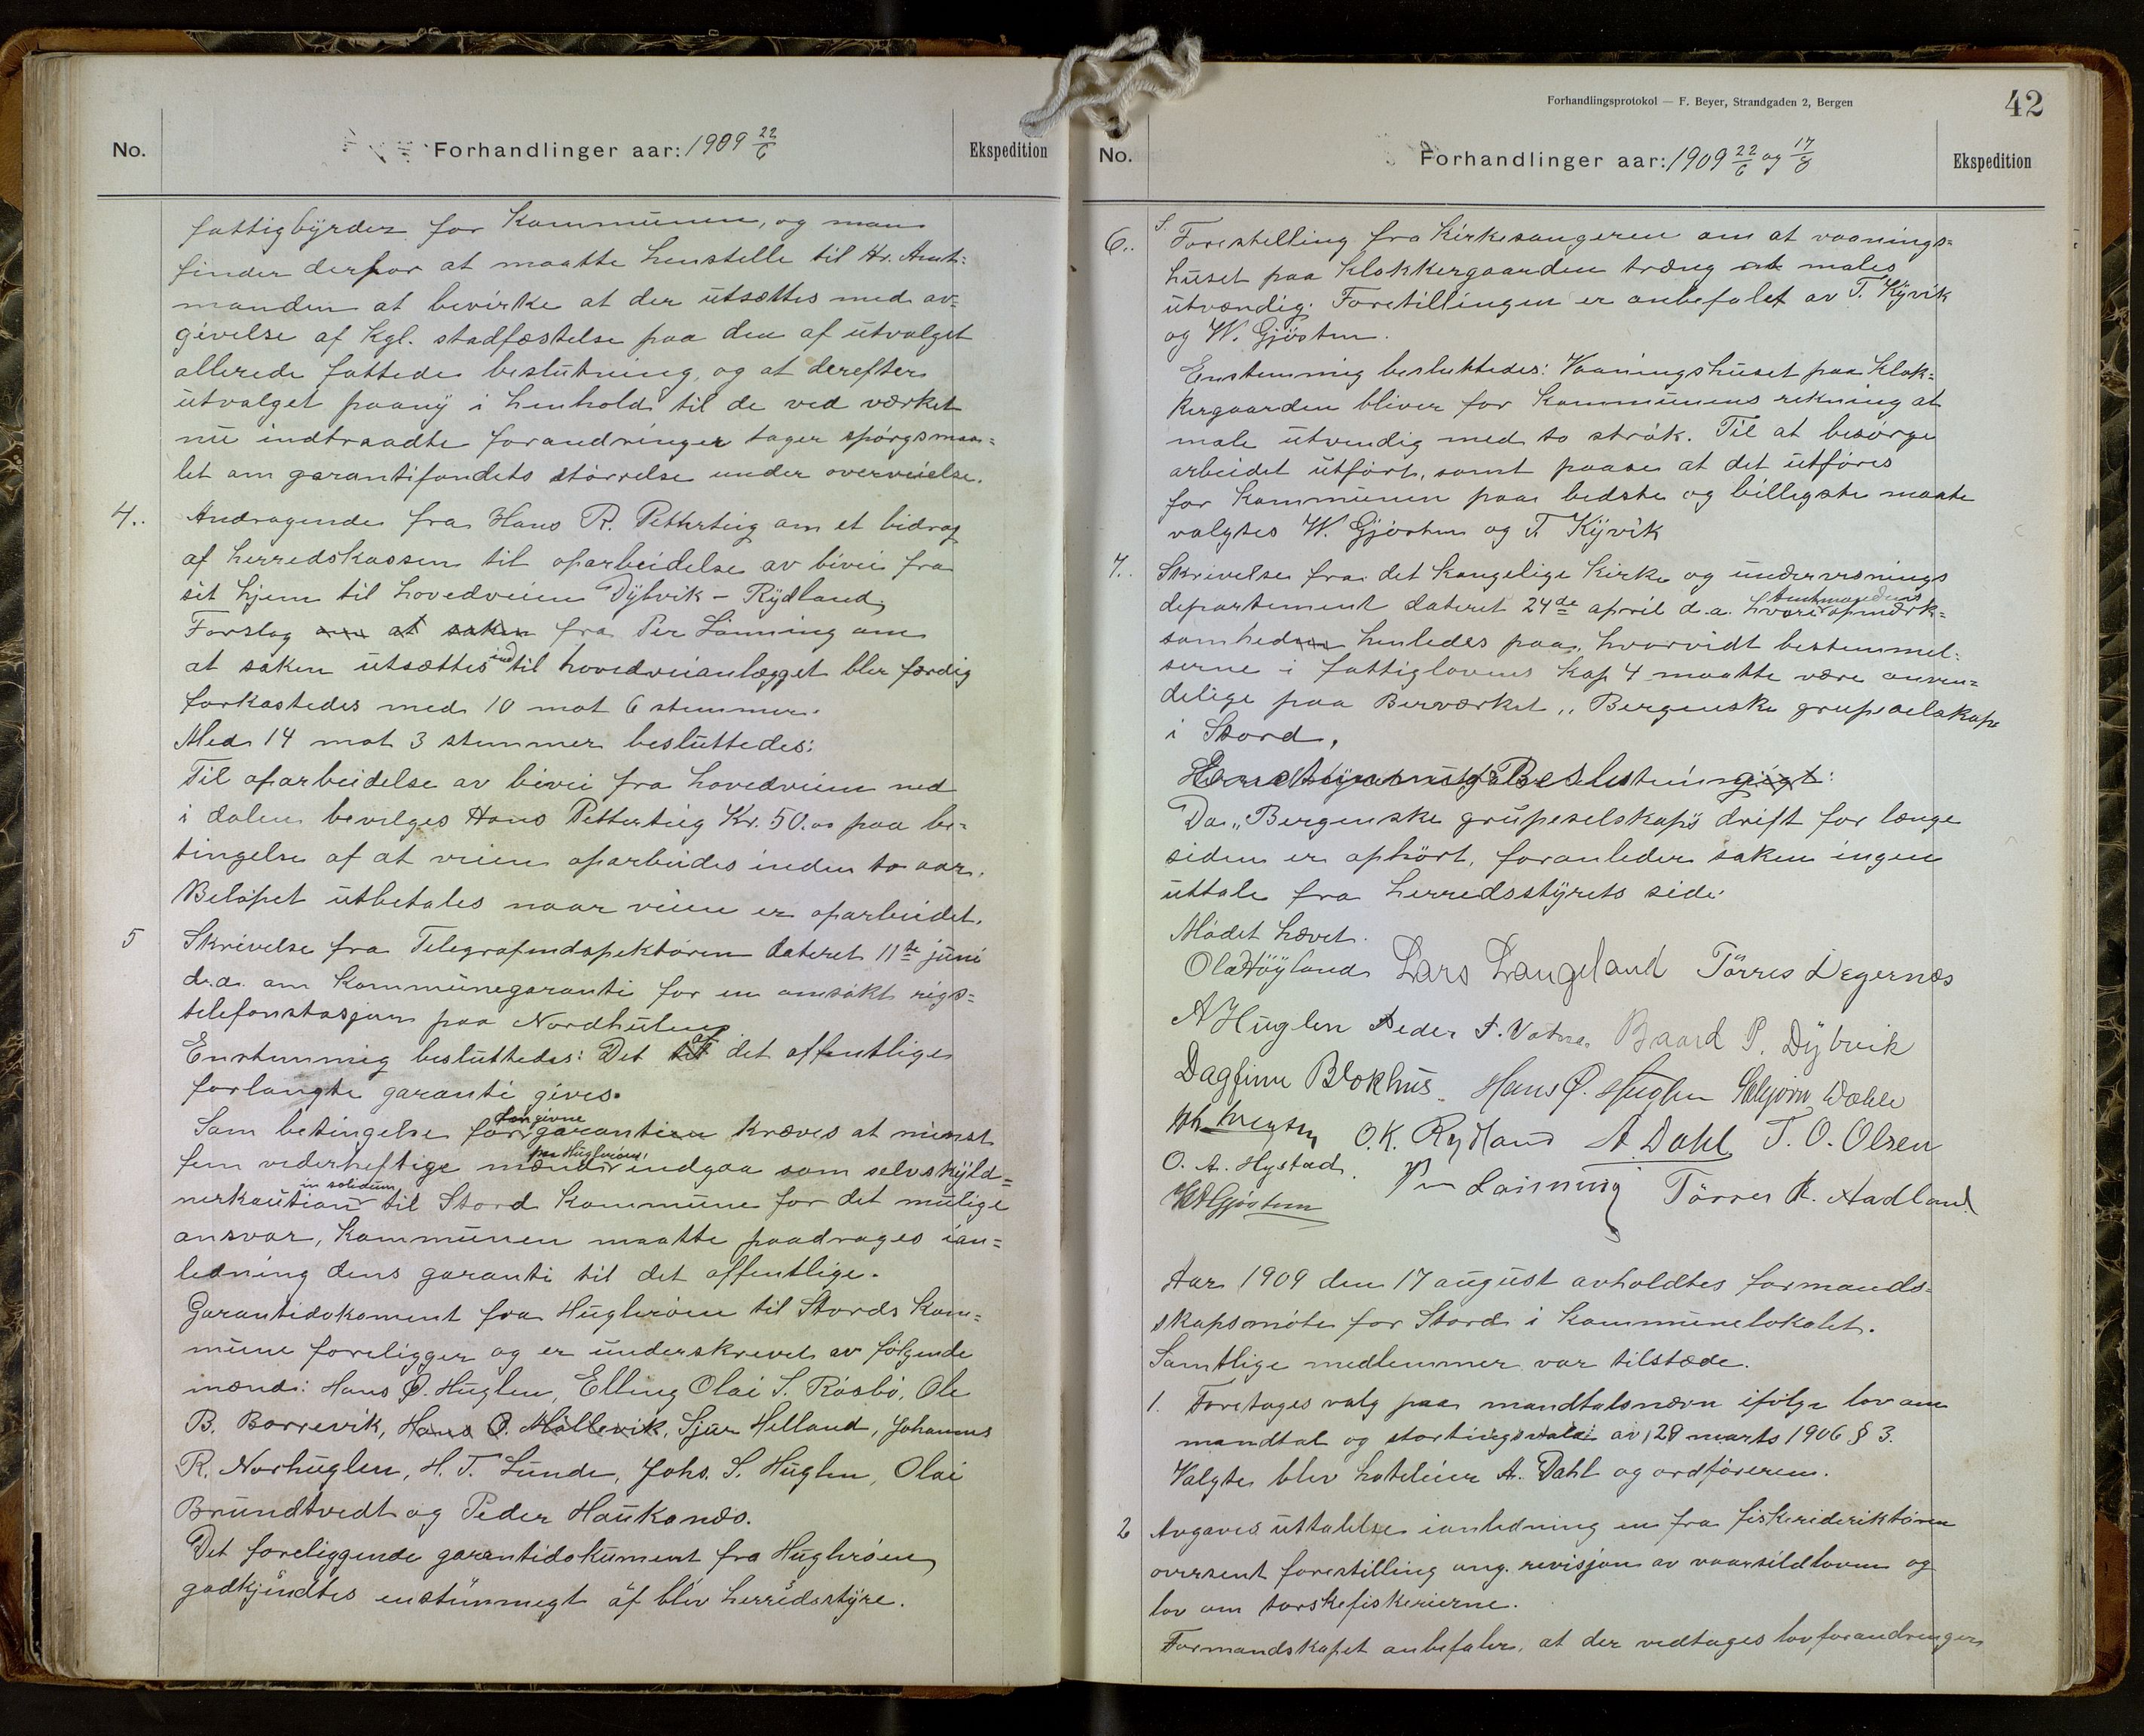 No. Forhandlinger aar: 1909 22/6 Ekspedition
fattigbyrder for Kommunen, og man
finder derfor at maatte henstille til Hr. Amt-
manden at bevirke at der utsættes med av=
givelse af Kgl. stadfæstelse paa den af utvalget
allerede fattede beslutning, og at derefter
utvalget paany i henhold til de ved værket
nu indtraadte forandringer tager spørgsmaa=
let om garantifondets størrelse under overveielse.
4. Andragende fra Hans R. Petterteig om et bidrag
af herredskassen til oparbeidelse av bivei fra
sit hjem til hovedveien Dybvik - Rydland,
Forslag om at saken fra Per Lønning om
at saken utsættes indtil hovedveianlægget blir færdig
forkastedes med 10 mot 6 stemmer.
Med 14 mot 3 stemmer besluttedes:
Til oparbeidelse av bivei fra hovedveien ned
i dalen bevilges Hans Petterteig Kr. 50.00 paa be=
tingelse af at veien oparbeides inden to aar.
Beløpet utbetales naar veien er oparbeidet.
5 Skrivelse fra Telegrafindspektøren dateret 11te juni
d.a. om Kommunegaranti for en ansøkt rigs=
telefonstasjon paa Nordhuglen
Enstemmig besluttedes: Det af det offentlige
forlangte garanti gives.
Som betingelse for den givne garantien kræves at minst
fem vederheftige mænd paa Huglerøen indgaa som selvskyld=
nerkaution in solidum til Stord Kommune for det mulige
ansvar, Kommunen maatte paadrages ian=
ledning dens garanti til det offentlige.
Garantidokoment fra Huglerøen til Stords Kom=
mune foreligger og er underskrevet av følgende
mænd: Hans Ø. Huglen, Elling Olai S. Røsbø, Ole
B. Borrevik, Hans O. Møllevik, Sjur Helland, Johannes
R. Norhuglen, H. T. Lunde, Johs. S. Huglen, Olai
Brundtvedt og Peder Haukanæs.
Det foreliggende garantidokument fra Huglerøen
godkjendtes enstemmigt af bliv herredsstyre.
Forhandlingsprotokol — F. Beyer, Strandgaden 2, Bergen 42
No. Forhandlinger aar: 1909 22/6 og 17/8 Ekspedition
6. Forestelling fra Kirkesangeren om at vaanings=
huset paa Klokkergaarden træng at males
utvændig. Forestillingen er anbefalet av T. Kyvik
og W. Gjøsten.
Enstemmig besluttedes: Vaaningshuset paa Klok=
kergaarden bliver for Kommunens rekning at
male utvendig med to strøk. Til at besørge
arbeidet utført, samt paase at det utføres
for Kommunen paa bedste og billigste maate
valgtes W. Gjøsten og T. Kyvik
7. Skrivelse fra det kongelige Kirke og undervisnings
departement dateret 24de april d.a. hvori Amtmandens opmærk=
somheden henledes paa, hvorvidt bestemmel=
serne i fattiglovens Kap 4 maatte være anven=
delige paa Berværket „Bergenske grupeselskap
i Stord,
Beslutning:
Da „Bergenske grupeselskap's drift for længe
siden er ophørt, foranleder saken ingen
uttale fra herredsstyrets side.
Mødet hævet.
Ola Høyland Lars Langeland Tørres Digernæs
A Huglen Peder T. Vatna. Baard P. Dybvik
Dagfinn Blokhus. Hans Ø. Huglen Wahle
O. K. Rydland A. Dahl T. O. Olsen
O. A. Hystad. Per Lønning Tørres R. Aadland
W Gjøsteen
Aar 1909 den 17 august avholdtes formands=
skapsmøte for Stord i Kommunelokalet.
Samtlige medlemmer var tilstæde.
1. Foretages valg paa mandtalsnævn ifølge lov om
mandtal og stortingsvalg av 29 marts 1906 § 3.
Valgte blev hoteleier A. Dahl og ordføreren.
2 Avgaves uttalelse ianledning en fra fiskeridirektøren
oversent forestilling ang. revisjon av vaarsildloven og
lov om torskefiskerierne.
Formandskapet anbefaler, at der vedtages lovforandringer